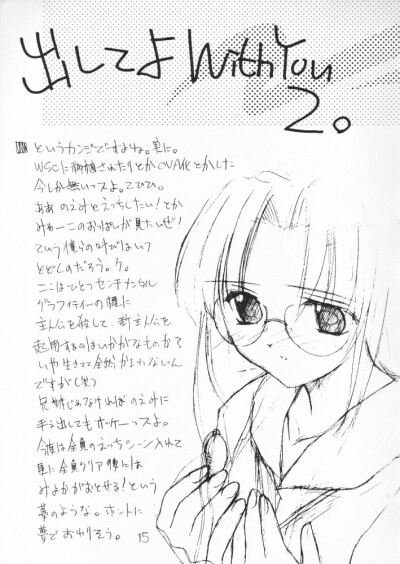 出してよ With You
2。
というカンジですよね。実に。
WSCに移植されたりとかOVA化とかした
今しか無いっスよ。てひひ。
ああ のえみとえっちしたい!とか
みゃーこのおっぱいが見たいぜ!
ていう僕らの叫びはいつ
とどくのだろう。ケ。
ここはひとつセンチメンタル
グラフティーの様に
主人公を殺して、新主人公を
起用するのはいかがなものか?
いや生きてて全然かまわないん
ですが(笑)
兄妹じゃなければのえみに
手え出してもオッケーっスよ。
今度は全員のえっちシーン入れて
更に全員クリア後には
みよかがおとせる!という
夢のような。ホントに
夢でおわりそう。
15